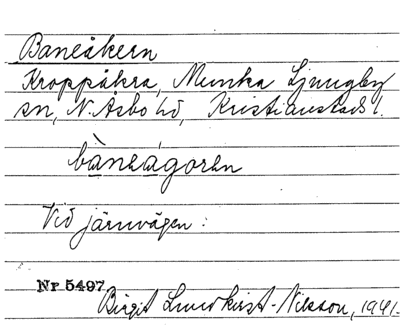 Baneåkern
Kroppåkra, Munka Ljungby
sn, N. Åsbo hd, Kristianstads l.
bàneágoren
Vid järnvägen:
Nr 5497
Birgit Lundkvist-Nilsson, 1941.